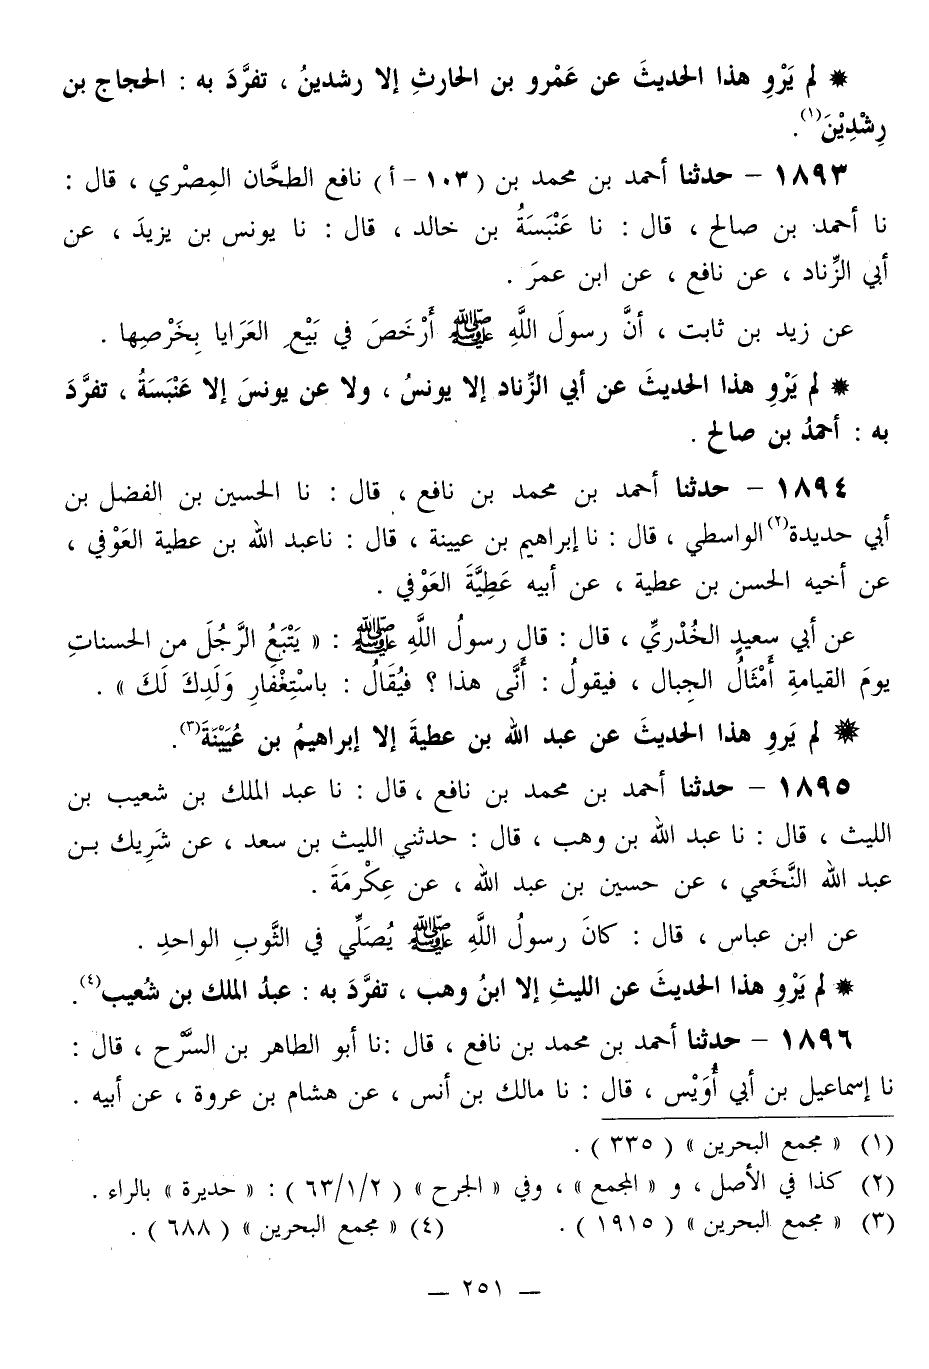 * لم يَرْوِ هذا الحديثَ عن عَمْرو بن الحارثِ إلا رشدينُ ، تفرَّدَ به : الحجاج بن
رِشْدِيْنَ(١).
١٨٩٣ - حدثنا أحمد بن محمد بن ( ١٠٣ - أ ) نافع الطحَّان المِصْري ، قال :
نا أحمد بن صالح ، قال : نا عَنْبَسَةُ بن خالد ، قال : نا يونس بن يزيدَ ، عن
أبي الزِّناد ، عن نافع ، عن ابن عمرَ .
عن زيد بن ثابت ، أنَّ رسولَ اللَّهِ ﷺ أَرْخَصَ في بَيْعِ العَرَايا بِخَرْصِها .
* لم يَرْوِ هذا الحديثَ عن أبي الزِّناد إلا يونسُ ، ولا عن يونسَ إلا عَنْبَسَةُ ، تفرَّدَ
به : أحمدُ بن صالح .
١٨٩٤ - حدثنا أحمد بن محمد بن نافع ، قال : نا الحسين بن الفضل بن
أبي حديدة(٢) الواسطي ، قال : نا إبراهيم بن عيينة ، قال : ناعبد الله بن عطية العَوْفي ،
عن أخيه الحسن بن عطية ، عن أبيه عَطِيَّةَ العَوْفي .
عن أبي سعيدٍ الخُدْريِّ ، قال : قال رسولُ اللَّهِ ﷺ : « يَتْبَعُ الرَّجُلَ من الحسناتِ
يومَ القيامةِ أَمْثَالُ الجبال ، فيقولُ : أَنَّى هذا ؟ فيُقَالُ : باسْتِغْفَارِ وَلَدِكَ لَكَ » .
* لم يَروِ هذا الحديثَ عن عبد الله بن عطيةَ إلا إبراهيمُ بن عُيَيْنَةَ(٣).
١٨٩٥ - حدثنا أحمد بن محمد بن نافع ، قال : نا عبد الملك بن شعيب بن
الليث ، قال : نا عبد الله بن وهب ، قال : حدثني الليث بن سعد ، عن شَرِيك بـن
عبد الله النَّخَعي ، عن حسين بن عبد الله ، عن عِكْرمَةَ .
عن ابن عباس ، قال : كانَ رسولُ اللَّهِ ﷺ يُصَلِّي في الثَّوبِ الواحدِ .
* لم يَرْوِ هذا الحديثَ عن الليثِ إلا ابنُ وهب ، تفرَّدَ به : عبدُ الملك بن شُعيب(٤).
١٨٩٦ - حدثنا أحمد بن محمد بن نافع ، قال :نا أبو الطاهر بن السَّرْح ، قال :
نا إسماعيل بن أبي أُوَيْس ، قال : نا مالك بن أنس ، عن هشام بن عروة ، عن أبيه .
(١) « مجمع البحرين » ( ٣٣٥ ) .
(٢) كذا في الأصل ، و « المجمع » ، وفي « الجرح » ( ٦٣/١/٢ ) : « حديرة » بالراء .
(٣) « مجمع البحرين » ( ١٩١٥ ) . (٤) « مجمع البحرين » ( ٦٨٨ ) .
— ٢٥١ —